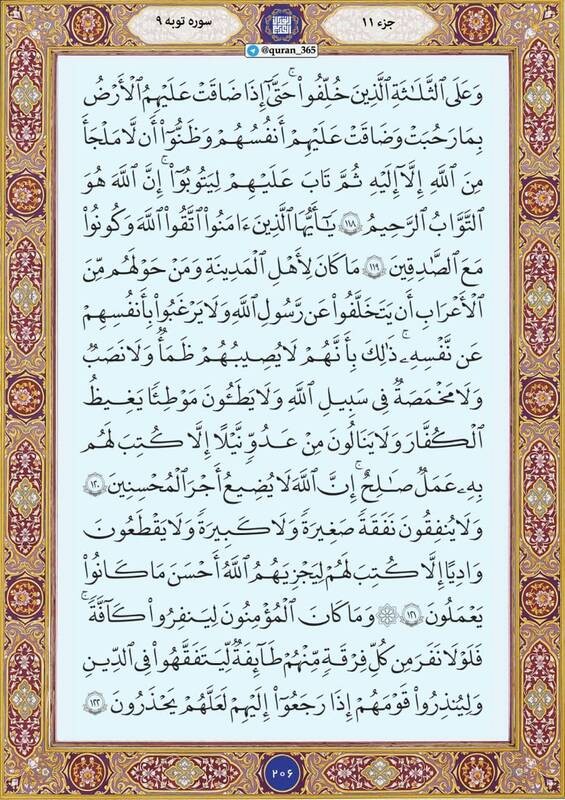 جزء ۱۱
سوره توبه ۹
@quran_365
وَعَلَى ٱلثَّلَٰثَةِ ٱلَّذِينَ خُلِّفُوا۟ حَتَّىٰٓ إِذَا ضَاقَتْ عَلَيْهِمُ ٱلْأَرْضُ
بِمَا رَحُبَتْ وَضَاقَتْ عَلَيْهِمْ أَنفُسُهُمْ وَظَنُّوٓا۟ أَن لَّا مَلْجَأَ
مِنَ ٱللَّهِ إِلَّآ إِلَيْهِ ثُمَّ تَابَ عَلَيْهِمْ لِيَتُوبُوٓا۟ ۚ إِنَّ ٱللَّهَ هُوَ
ٱلتَّوَّابُ ٱلرَّحِيمُ ۱۱۸ يَٰٓأَيُّهَا ٱلَّذِينَ ءَامَنُوا۟ ٱتَّقُوا۟ ٱللَّهَ وَكُونُوا۟
مَعَ ٱلصَّٰدِقِينَ ۱۱۹ مَا كَانَ لِأَهْلِ ٱلْمَدِينَةِ وَمَنْ حَوْلَهُم مِّنَ
ٱلْأَعْرَابِ أَن يَتَخَلَّفُوا۟ عَن رَّسُولِ ٱللَّهِ وَلَا يَرْغَبُوا۟ بِأَنفُسِهِمْ
عَن نَّفْسِهِۦ ۚ ذَٰلِكَ بِأَنَّهُمْ لَا يُصِيبُهُمْ ظَمَأٌ وَلَا نَصَبٌ
وَلَا مَخْمَصَةٌ فِى سَبِيلِ ٱللَّهِ وَلَا يَطَـُٔونَ مَوْطِئًا يَغِيظُ
ٱلْكُفَّارَ وَلَا يَنَالُونَ مِنْ عَدُوٍّ نَّيْلًا إِلَّا كُتِبَ لَهُم
بِهِۦ عَمَلٌ صَٰلِحٌ ۚ إِنَّ ٱللَّهَ لَا يُضِيعُ أَجْرَ ٱلْمُحْسِنِينَ ۱۲۰
وَلَا يُنفِقُونَ نَفَقَةً صَغِيرَةً وَلَا كَبِيرَةً وَلَا يَقْطَعُونَ
وَادِيًا إِلَّا كُتِبَ لَهُمْ لِيَجْزِيَهُمُ ٱللَّهُ أَحْسَنَ مَا كَانُوا۟
يَعْمَلُونَ ۱۲۱ ۞ وَمَا كَانَ ٱلْمُؤْمِنُونَ لِيَنفِرُوا۟ كَآفَّةً ۚ
فَلَوْلَا نَفَرَ مِن كُلِّ فِرْقَةٍ مِّنْهُمْ طَآئِفَةٌ لِّيَتَفَقَّهُوا۟ فِى ٱلدِّينِ
وَلِيُنذِرُوا۟ قَوْمَهُمْ إِذَا رَجَعُوٓا۟ إِلَيْهِمْ لَعَلَّهُمْ يَحْذَرُونَ ۱۲۲
۲۰۶